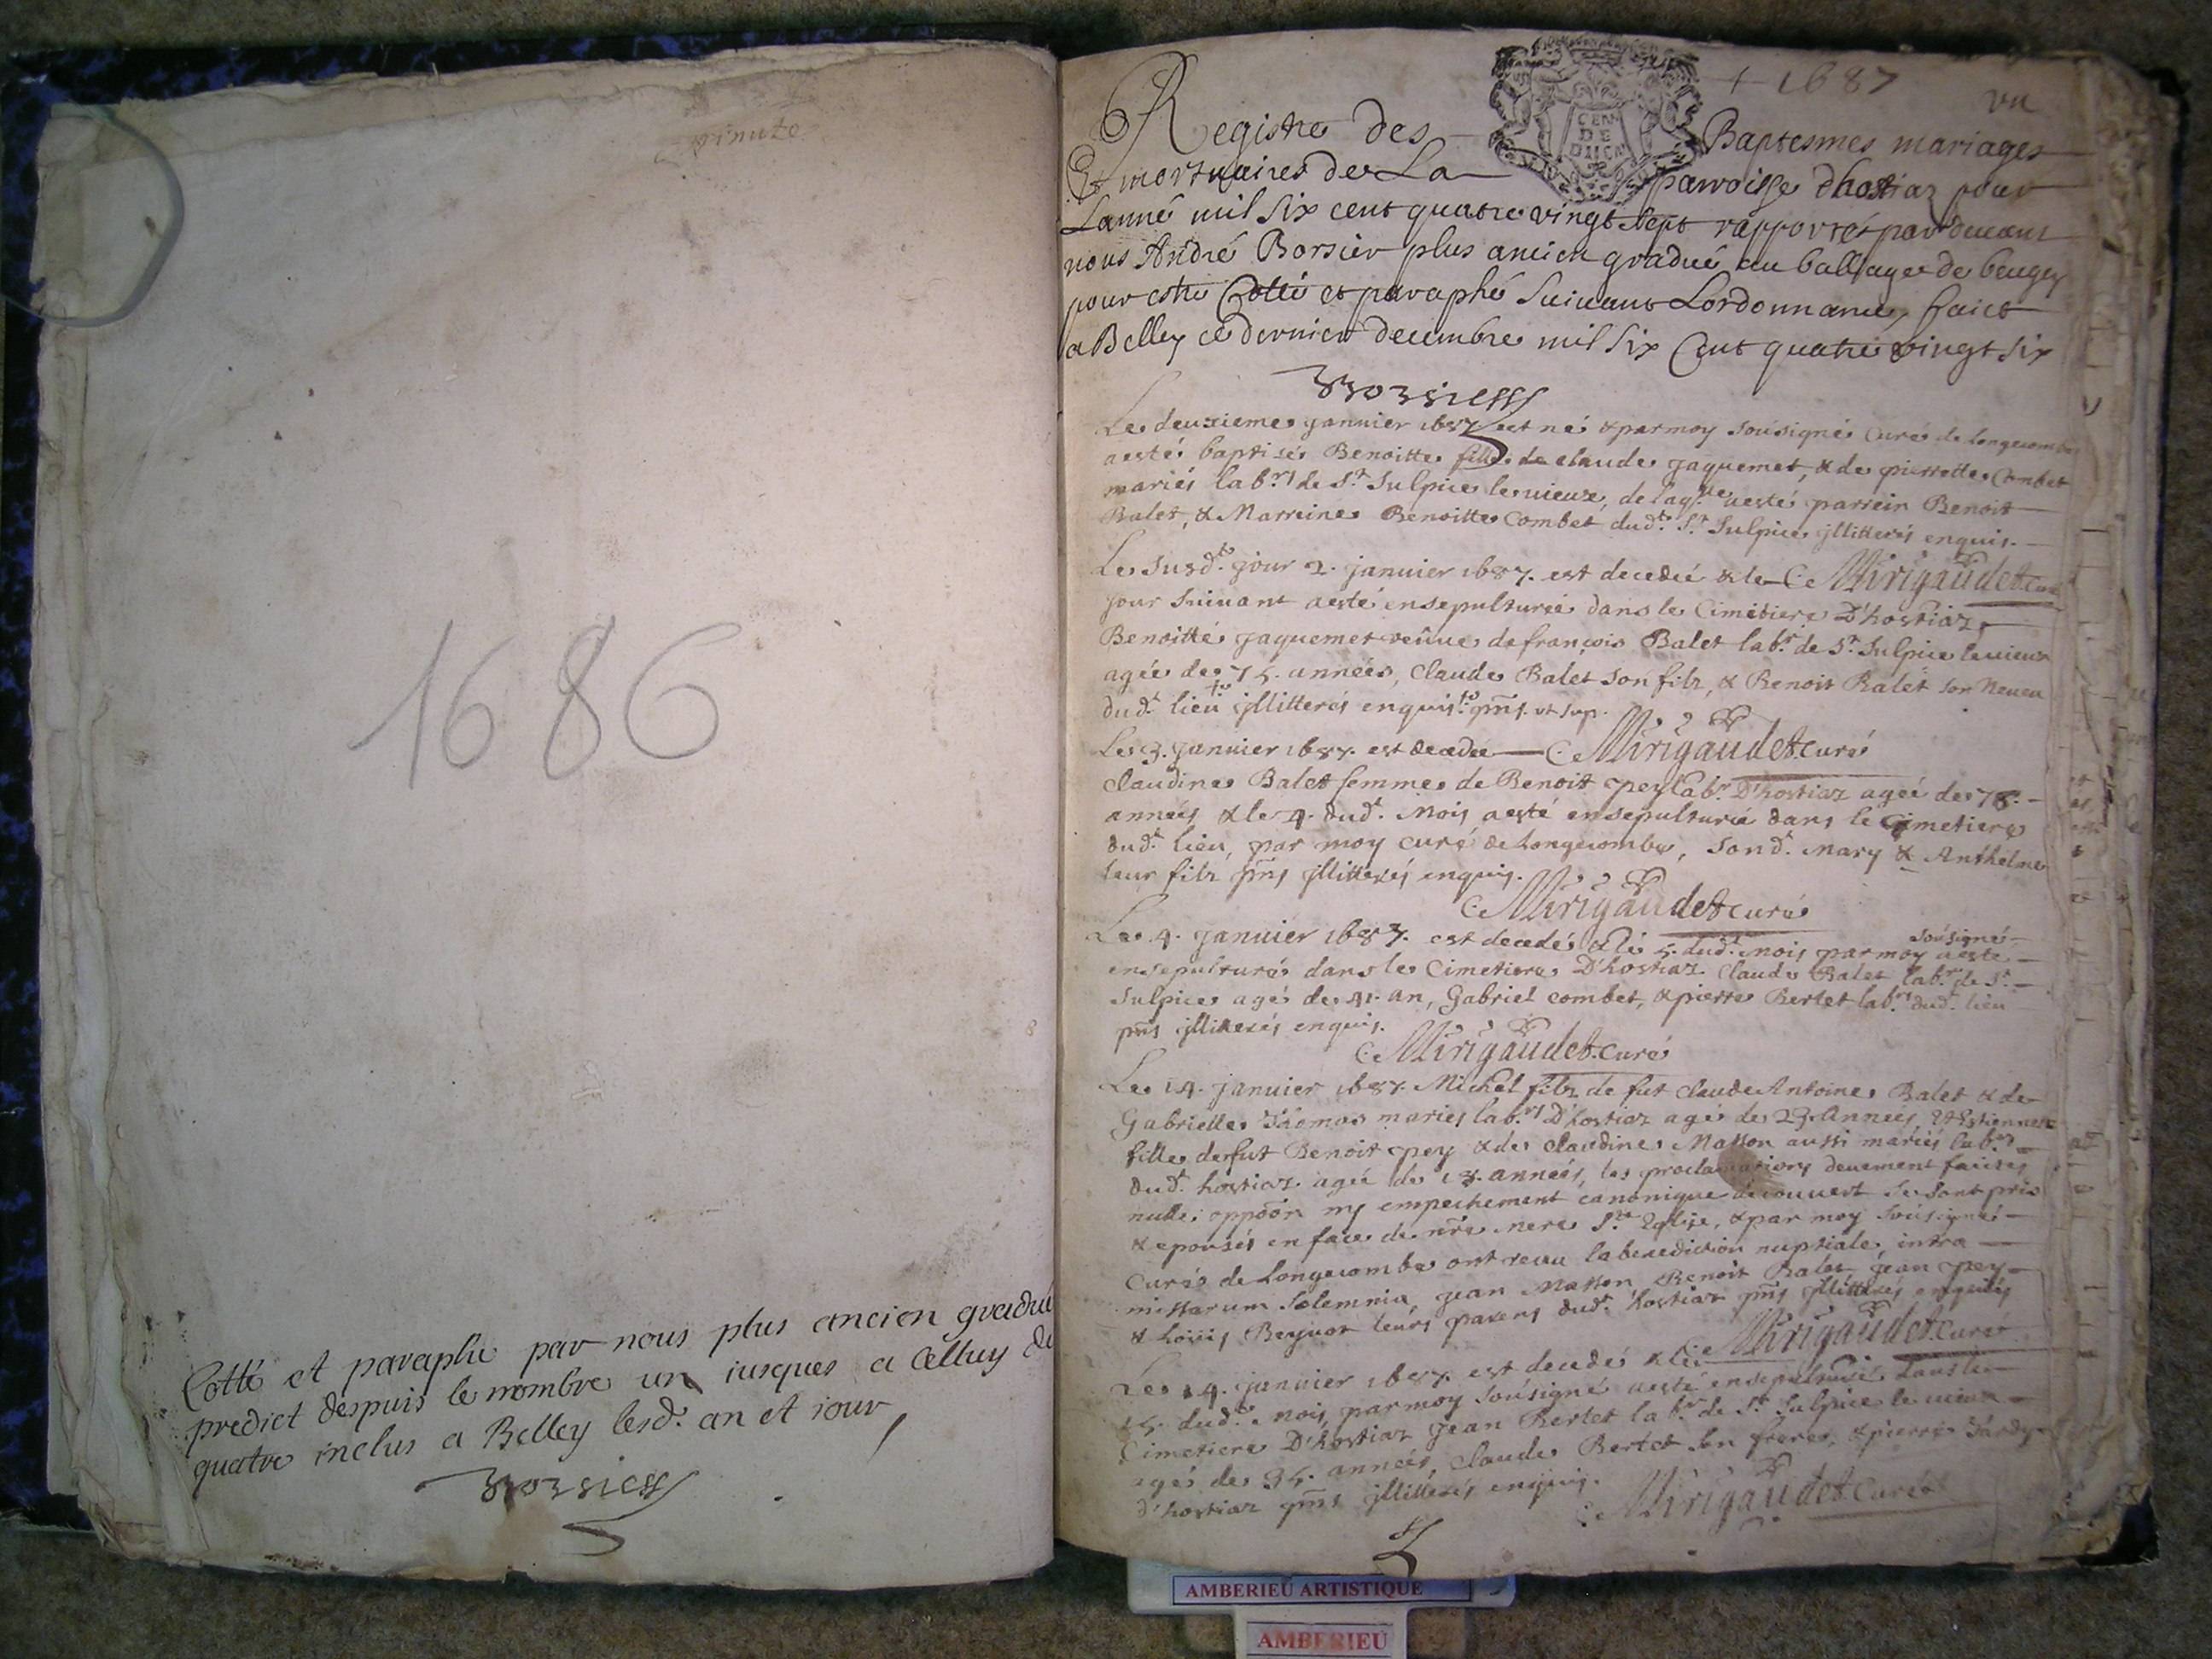 minute
1686
Cotté et paraphé par nous plus ancien gradué
predict despuis le nombre un iusques a celluy de
quatre inclus a Belley lesd. an et iour
+ 1687
un
GEN
DE
Registre des Baptesmes mariages
Et mortuaires de La parroisse dhostiaz pour
Lanné mil six cent quatre vingt sept rapportés par deuant
nous André Borsier plus ancien gradué au balliage de beugey
pour estre Cotté et paraphé suiuant Lordonnance, faict
a Belley ce dernier decembre mil six Cent quatre vingt six
Le deuxieme januier 1687 est né & par moy sousigné Curé de Longecombe
a esté baptisé Benoitte fille de claude jaquemet, & de pierrette Combet
mariés lab.rs de S.t Sulpice le uieux, de laq.lle a esté parrein Benoit
Balet, & Marreine Benoitte Combet dud.t S.t Sulpice jllitterés enquis.
Le susd.t jour 2. januier 1687. est decedée & le C. Mirigaudet curé
jour suiuant a esté ensepulturée dans le Cimetiere D'hostiaz
Benoitte jaquemet veuue de françois Balet lab.r de S.t Sulpice le uieux
agée de 75. années, Claude Balet son filz, & Benoit Balet son Neueu
dud.t lieu jllitterés enquis. pñs. vt sup.
Le 3. januier 1687. est decedée C. Mirigaudet curé
Claudine Balet femme de Benoit pey lab.r D'hostiaz agée de 78.
années & le 4. dud.t Mois a esté ensepulturée dans le Cimetiere
dud.t lieu, par moy curé de Longecombe, Sond.t Mary & Anthelme
leur filz pñs jllitterés enquis.
C. Mirigaudet curé
Le 4. januier 1687. est decedé & le 5. dud.t mois par moy sousigné a esté
ensepulturé dans le Cimetiere D'hostiaz Claude Balet lab.r de S.t
Sulpice agé de 41. an, Gabriel combet, & pierre Bertet lab.rs dud.t lieu
pñs jllitterés enquis.
C. Mirigaudet curé
Le 14. januier 1687. Michel filz de fut Claude Antoine Balet & de
Gabrielle Thomas mariés lab.rs D'hostiaz agé de 23. Années, & Estiennette
fille de fut Benoit pey & de Claudine Masson aussi mariés lab.rs
dud.t hostiaz agée de années, les proclamations deuement faites
nulle oppoôn ny empechement canonique découuert se sont pris
& epousés en face de nre mere S.te Eglise, & par moy sousigné
Curé de Longecombe ont receu la benediction nuptiale, intra
missarum solemnia, jean Masson, Benoit Balet jean pey
& Louis Beynot leurs parens dud.t hostiaz pñs jllitterés enquis
C. Mirigaudet curé
Le 14. januier 1687. est decedé & le
15. dud.t Mois, par moy sousigné a esté ensepulturé dans le
Cimetiere D'hostiaz jean Bertet lab.r de S.t Sulpice le uieux
agé de 35. années, Claude Bertet son frere, & pierre
d'hostiaz pñs jllitterés enquis.
C. Mirigaudet curé
AMBERIEU ARTISTIQUE
AMBERIEU